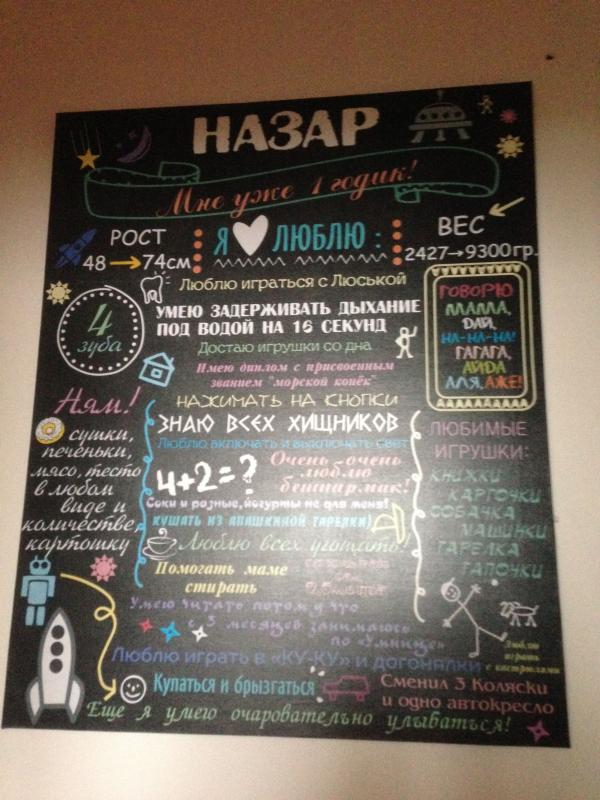 НАЗАР
Мне уже 1 годик!
РОСТ
48 → 74см
Я ЛЮБЛЮ :
ВЕС
2427→9300гр.
4
зуба
Люблю играться с Люськой
УМЕЮ ЗАДЕРЖИВАТЬ ДЫХАНИЕ
ПОД ВОДОЙ НА 16 СЕКУНД
Достаю игрушки со дна
Имею диплом с присвоенным
званием "морской конёк"
НАЖИМАТЬ НА КНОПКИ
ЗНАЮ ВСЕХ ХИЩНИКОВ
Люблю включать и выключать свет
4+2=?
Очень-очень
люблю
бешпармак!
Соки и разные йогурты не для меня!
КУШАТЬ ИЗ АПАШКИНОЙ ТАРЕЛКИ)
Люблю всех угощать!
Помогать маме
стирать
ГОВОРЮ
МАМА,
ДАЙ,
НА-НА-НА!
ГАГАГА,
АЙДА
АЛЯ, АЖЕ!
Ням!
сушки,
печеньки,
мясо, тесто
в любом
виде и
количестве,
картошку
ЛЮБИМЫЕ
ИГРУШКИ:
КНИЖКИ
КАРТОЧКИ
СОБАЧКА
МАШИНКИ
ТАРЕЛКА
ТАПОЧКИ
Умею читать потому что
с 3 месяцев занимаюсь
по «Умнице»
Люблю
играть
с кастрюлями
Люблю играть в «КУ-КУ» и догонялки
Купаться и брызгаться
Сменил 3 Коляски
и одно автокресло
Еще я умею очаровательно улыбаться!